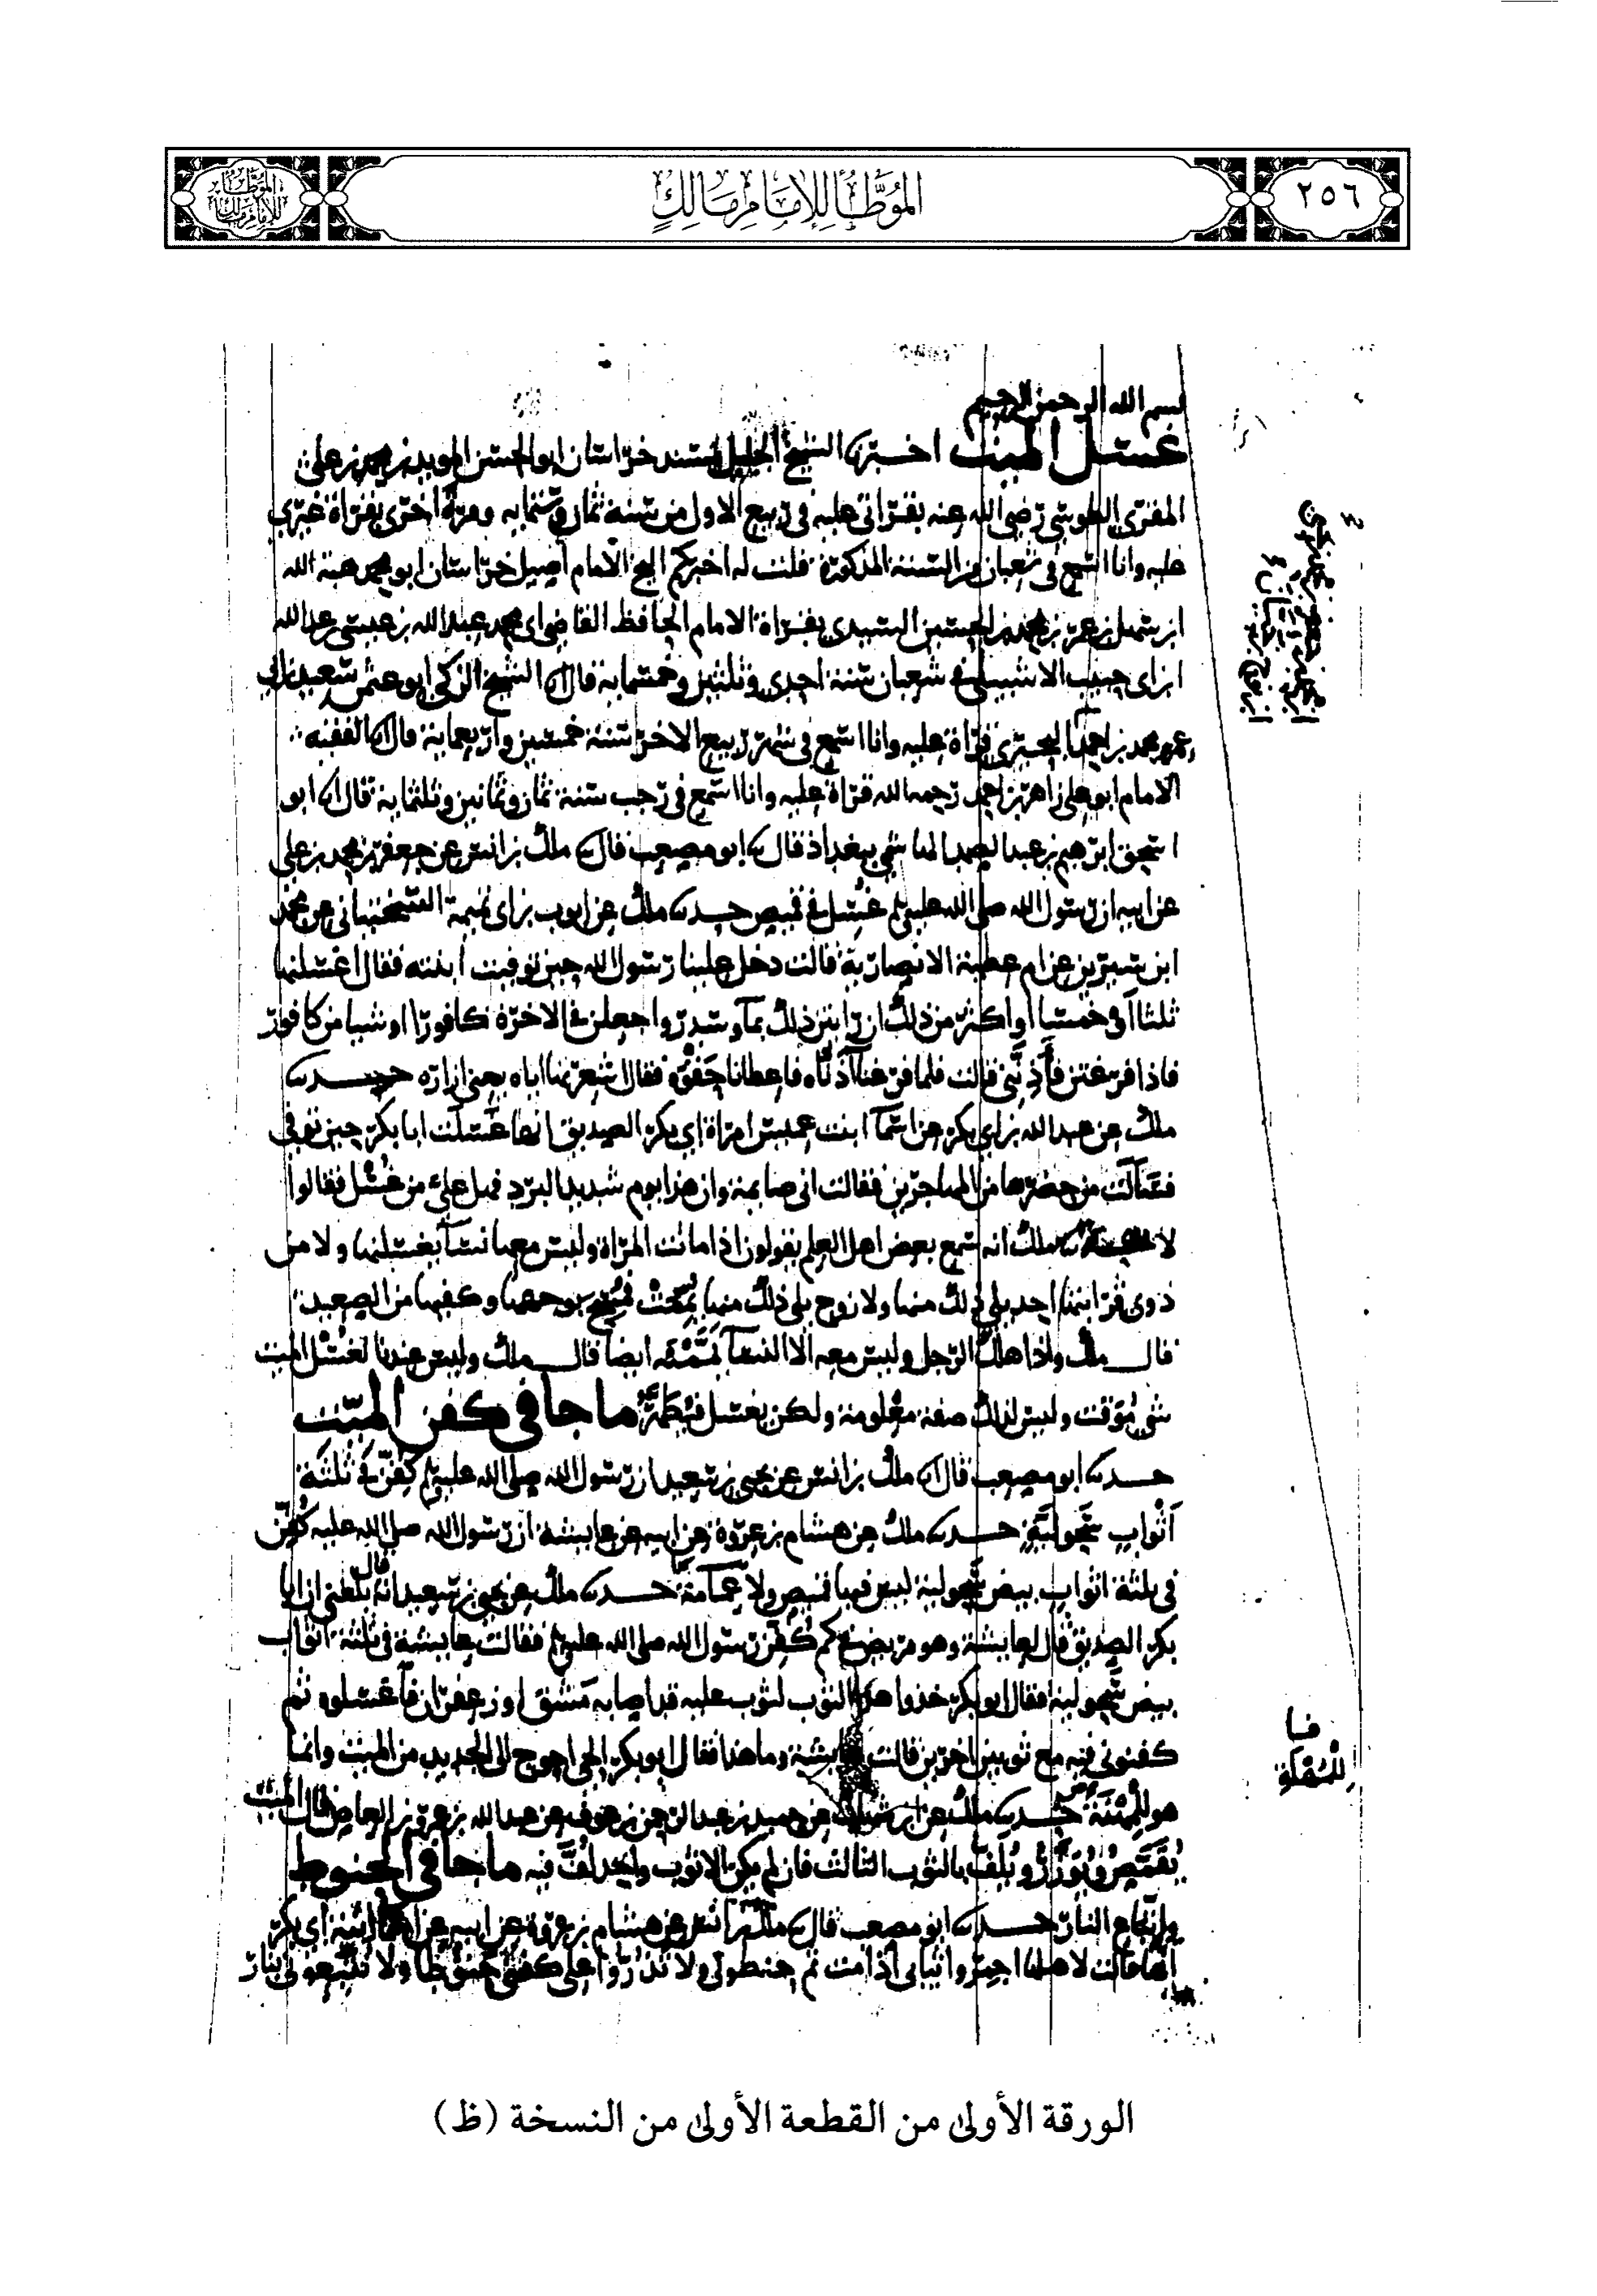 ٢٥٦
الموطأ للإمام مالك
الموطأ للإمام مالك
بسم الله الرحمن الرحيم
غسل الميت اخبرنا الشيخ الجليل مسند خراسان ابو الحسن المويد بن محمد بن علي
المقرى الطوسي رضي الله عنه بقراتي عليه في ربيع الاول من سنة ثمان وستمايه ومرة اخرى بقراة غيري
عليه وانا اسمع في شعبان من السنة المذكورة قلت له اخبركم الشيخ الامام اصيل خراسان ابو محمد هبة الله
ابن سهل بن عمر بن محمد بن الحسين السيدي بقراة الامام الحافظ القاضي ابي محمد عبد الله بن عيسى بن عبد الله
ابن ابي حبيب الاشبيلي في شعبان سنة احدى وثلثين وخمسمايه قال انا الشيخ الزكي ابو عثمن سعيد بن ابي
عمرو محمد بن احمد البحيري قراة عليه وانا اسمع في شهر ربيع الاخر سنة خمسين واربعماية قال انا الفقيه
الامام ابو علي زاهر بن احمد رحمه الله قراة عليه وانا اسمع في رجب سنة ثمان وثمانين وثلثماية قال انا ابو
اسحق ابرهيم بن عبد الصمد الهاشمي ببغداذ قال انا ابو مصعب قال نا ملك بن انس عن جعفر بن محمد بن علي
عن ابيه ان رسول الله صلى الله عليه وسلم غسل في قميص حدثنا ملك عن ايوب بن ابي تميمة السختياني عن محمد
ابن سيرين عن ام عطية الانصارية قالت دخل علينا رسول الله حين توفيت ابنته فقال اغسلنها
ثلثا او خمسا او اكثر من ذلك ان رايتن ذلك بمآ وسدر واجعلن في الاخرة كافورا او شيا من كافور
فاذا فرغتن فآذنني قالت فلما فرغنا آذناه فاعطانا حقوه فقال اشعرنها اياه يعني ازاره حدثنا
ملك عن عبد الله بن ابي بكر عن اسمآ ابنت عميس امراة ابي بكر الصديق انها غسلت ابا بكر حين توفي
فسالت من حضرها من المهاجرين فقالت اني صايمة وان هذا يوم شديد البرد فهل علي من غسل فقالوا
لا حدثنا ملك انه سمع بعض اهل العلم يقولون اذا ماتت المراة وليس معها نسآ يغسلنها ولا من
ذوي قرابتها احد يلي ذلك منها ولا زوج يلي ذلك منها يممت فمسح بوجهها وكفيها من الصعيد
قال ملك واذا هلك الرجل وليس معه الا النسآ يممنه ايضا قال ملك وليس عندنا لغسل الميت
شي موقت وليس لذلك صفة معلومة ولكن يغسل فيطهر ما جا في كفن الميت
حدثنا ابو مصعب قال نا ملك بن انس عن يحيى بن سعيد ان رسول الله صلى الله عليه وسلم كفن في ثلثة
اثواب سحولية حدثنا ملك عن هشام بن عروة عن ابيه عن عايشة ان رسول الله صلى الله عليه كفن
في ثلثة اثواب بيض سحولية ليس فيها قميص ولا عمآمة حدثنا ملك عن يحيى بن سعيد انه قال بلغني ان ابا
بكر الصديق قال لعايشة وهو مريض في كم كفن رسول الله صلى الله عليه وسلم فقالت عايشة في ثلثة اثواب
بيض سحولية فقال ابو بكر خذوا هذا الثوب لثوب عليه قد اصابه مشق او زعفران فاغسلوه ثم
كفنوني فيه مع ثوبين اخرين قالت عايشة وما هذا فقال ابو بكر الحي احوج الى الجديد من الميت وانما
هو للمهنة حدثنا ملك عن ابن شهاب عن حميد بن عبد الرحمن بن عوف عن عبد الله بن عمرو بن العاص قال الميت
يقمص ويوزر ويلف بالثوب الثالث فان لم يكن الا ثوب واحد لف فيه ما جا في الحنوط
واتباع النار حدثنا ابو مصعب قال نا ملك بن انس عن هشام بن عروة عن ابيه عن اسما ابنة ابي بكر
انها قالت لاهلها اجمروا ثيابي اذا مت ثم حنطوني ولا تذروا على كفني حنوطا ولا تتبعوني بنار
للمهلة
الورقة الأولى من القطعة الأولى من النسخة (ظ)